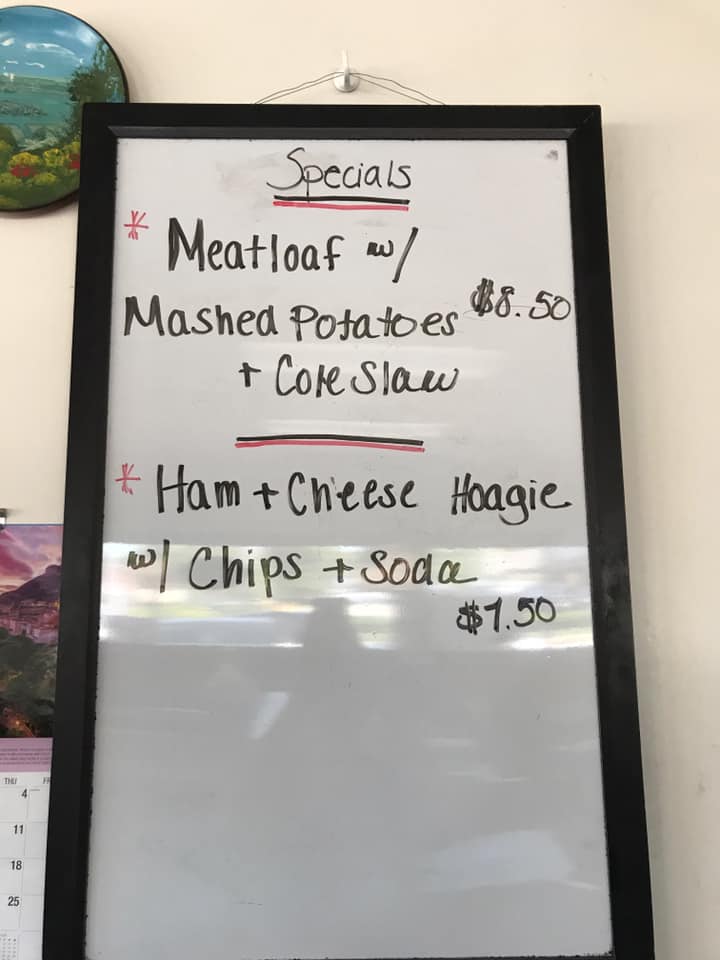 Specials
* Meatloaf w/
Mashed Potatoes $8.50
+ Cole Slaw
* Ham + Cheese Hoagie
w/ Chips + Soda
$7.50
THU
4
11
18
25